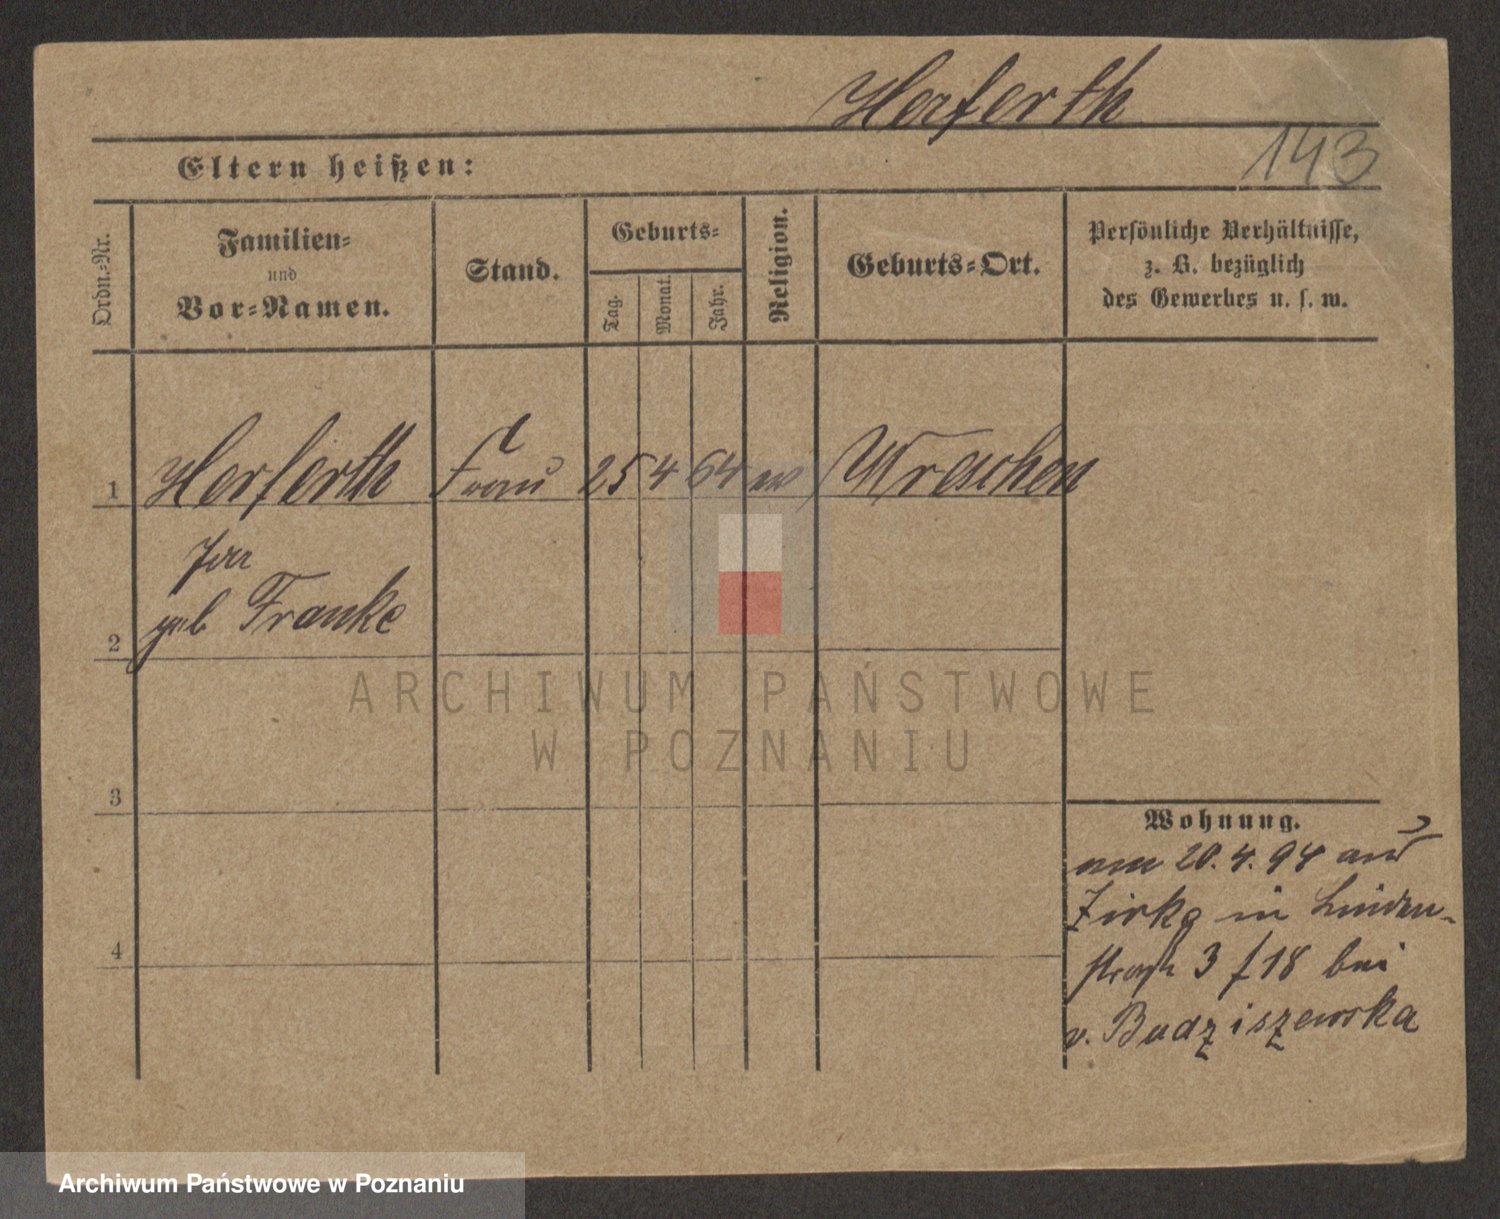 Herferth
143
Eltern heißen:
Ordn.-Nr.
Familien-
und
Vor-Namen.
Stand.
Geburts-
Tag.
Monat.
Jahr.
Religion.
Geburts-Ort.
Persönliche Verhältnisse,
z. B. bezüglich
des Gewerbes u. s. w.
1 Herferth Frau 25 4 64 ev Wreschen
geb Franke
2
ARCHIWUM PAŃSTWOWE
W POZNANIU
3
Wohnung.
am 20.4.94 aus
Zirke in Linden-
4
straße 3 f 18 bei
v. Budziszewska
Archiwum Państwowe w Poznaniu